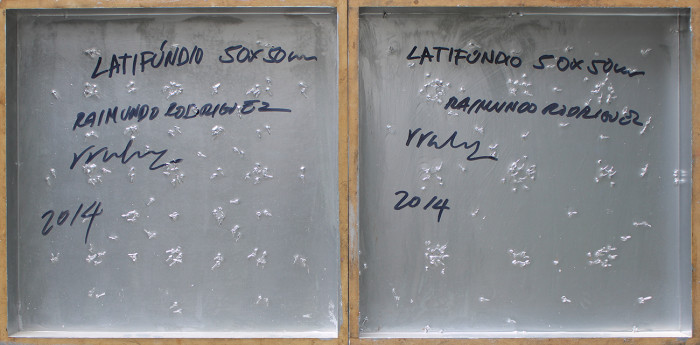 LATIFÚNDIO 50X50cm
RAIMUNDO RODRIGUEZ
2014
LATIFÚNDIO 50X50cm
RAIMUNDO RODRIGUEZ
2014